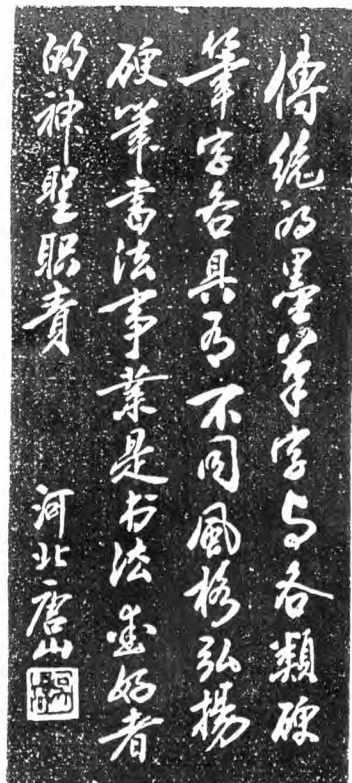 傳统的墨筆字与各類硬
筆字各具有不同風格弘揚
硬筆書法事業是书法爱好者
的神聖职责
河北唐山